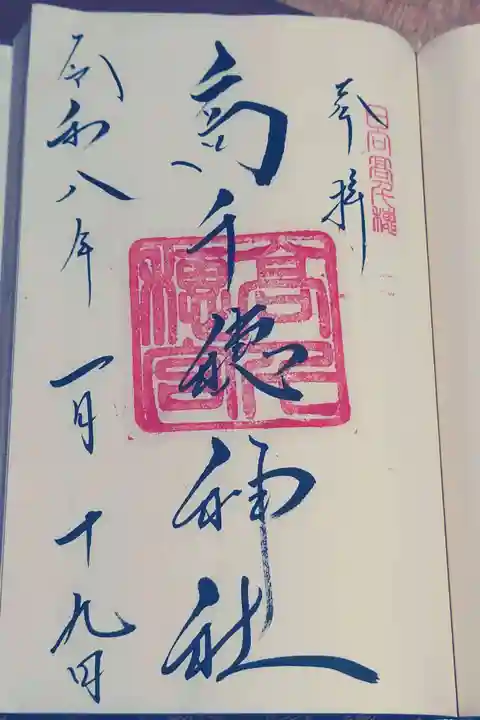 奉拝
日向高千穂
高千穂神社
高千穂宮
令和八年一月十九日